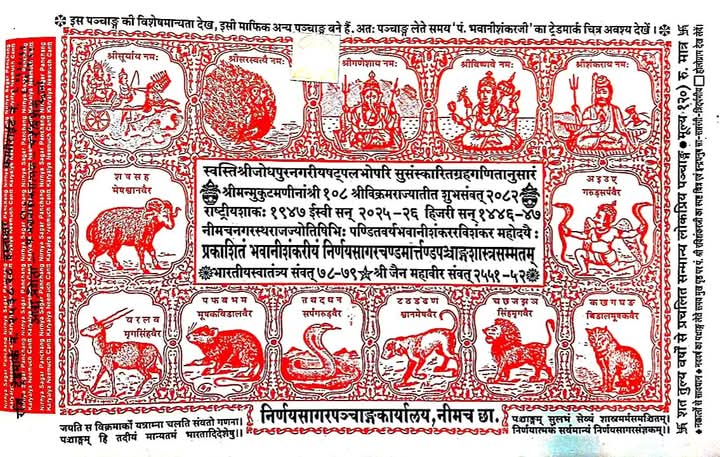 ❊ इस पञ्चाङ्ग की विशेषमान्यता देख, इसी माफिक अन्य पञ्चाङ्ग बने हैं. अतः पञ्चाङ्ग लेते समय 'पं. भवानीशंकरजी' का ट्रेडमार्क चित्र अवश्य देखें। ❊
श्रीसूर्याय नमः
श्रीसरस्वत्यै नमः
श्रीगणेशाय नमः
श्रीविष्णवे नमः
श्रीशंकराय नमः
श ष स ह
मेषश्वानवैर
स्वस्तिश्रीजोधपुरनगरीयषट्पलभोपरि सुसंस्कारितग्रहगणितानुसारं
श्रीमन्मुकटमणीनांश्री १०८ श्रीविक्रमराज्यातीत शुभसंवत् २०८२
राष्ट्रीयशाकः १९४७ ईस्वी सन् २०२५-२६ हिजरी सन् १४४६-४७
नीमचनगरस्थराजज्योतिषिभिः पण्डितवर्यभवानीशंकररविशंकर महोदयैः
प्रकाशितं भवानीशंकरीयं निर्णयसागरचण्डमार्त्तण्डपञ्चाङ्गशास्त्रसम्मतम्
भारतीयस्वातंत्र्य संवत् ७८-७९ ★ श्री जैन महावीर संवत् २५५१-५२
अ इ उ ए
गरुडसर्पवैर
य र ल व
मृगसिंहवैर
प फ ब भ म
मूषकविडालवैर
त थ द ध न
सर्पगरुड़वैर
ट ठ ड ढ ण
श्वानमेषवैर
च छ ज झ ञ
सिंहमृगवैर
क ख ग घ ङ
बिडालमूषकवैर
जयति स विक्रमार्को यत्राम्ना चलति संवतो गणना।
पञ्चाङ्गम् हि तदीयं मान्यतमं भारतादिदेशेषु।।
निर्णयसागरपञ्चाङ्गकार्यालय, नीमच छा.
पञ्चाङ्गम् सुलभं सेव्यं शास्त्रमर्मसमन्वितम्।
निर्णयात्मक सर्वमान्यं निर्णयसागरसंज्ञकम्।।
卐 शत तुल्य वर्षों से प्रचालित सम्मान्य लोकप्रिय पञ्चाङ्ग ● मूल्य १२०) रु. मात्र 卐
Nirnya Sagar Panchang Karyalya Neemuch Cantt